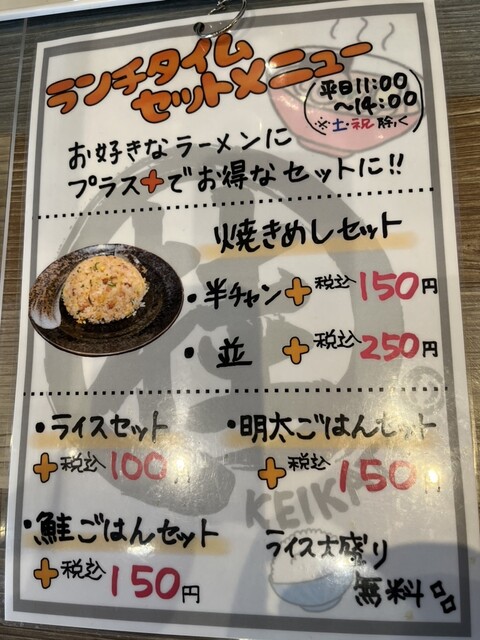 ランチタイム
セットメニュー
(平日11:00
～14:00
※土・祝除く)
お好きなラーメンに
プラス+でお得なセットに!!
焼きめしセット
・半チャン+税込150円
・並 +税込250円
・ライスセット
+税込100円
・明太ごはんセット
+税込150円
・鮭ごはんセット
+税込150円
ライス大盛り
無料。
KEIKA